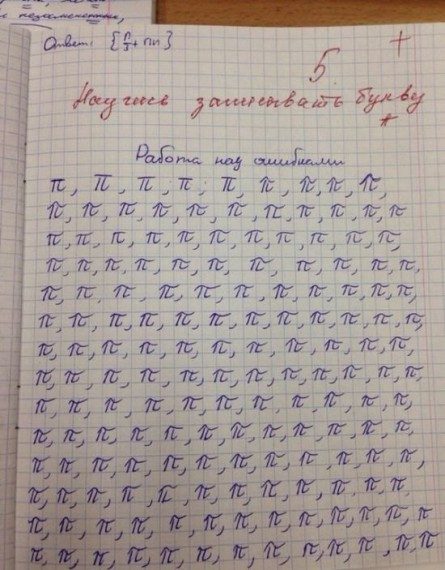 Ответ: {π/3 + πn}
5 +
Научись записывать букву
Работа над ошибками
π, π, π, π, π, π, π, π, π,
π, π, π, π, π, π, π, π, π, π, π
π, π, π, π, π, π, π, π, π, π, π,
π, π, π, π, π, π, π, π, π, π, π,
π, π, π, π, π, π, π, π, π, π, π,
π, π, π, π, π, π, π, π, π, π, π, π,
π, π, π, π, π, π, π, π, π, π, π,
π, π, π, π, π, π, π, π, π, π, π, π,
π, π, π, π, π, π, π, π, π, π, π,
π, π, π, π, π, π, π, π, π, π, π, π,
π, π, π, π, π, π, π, π, π, π, π, π,
π, π, π, π, π, π, π, π, π, π, π, π
π, π, π, π, π, π, π, π, π, π, π, π, π
π, π, π, π, π, π, π, π, π, π, π, π, π